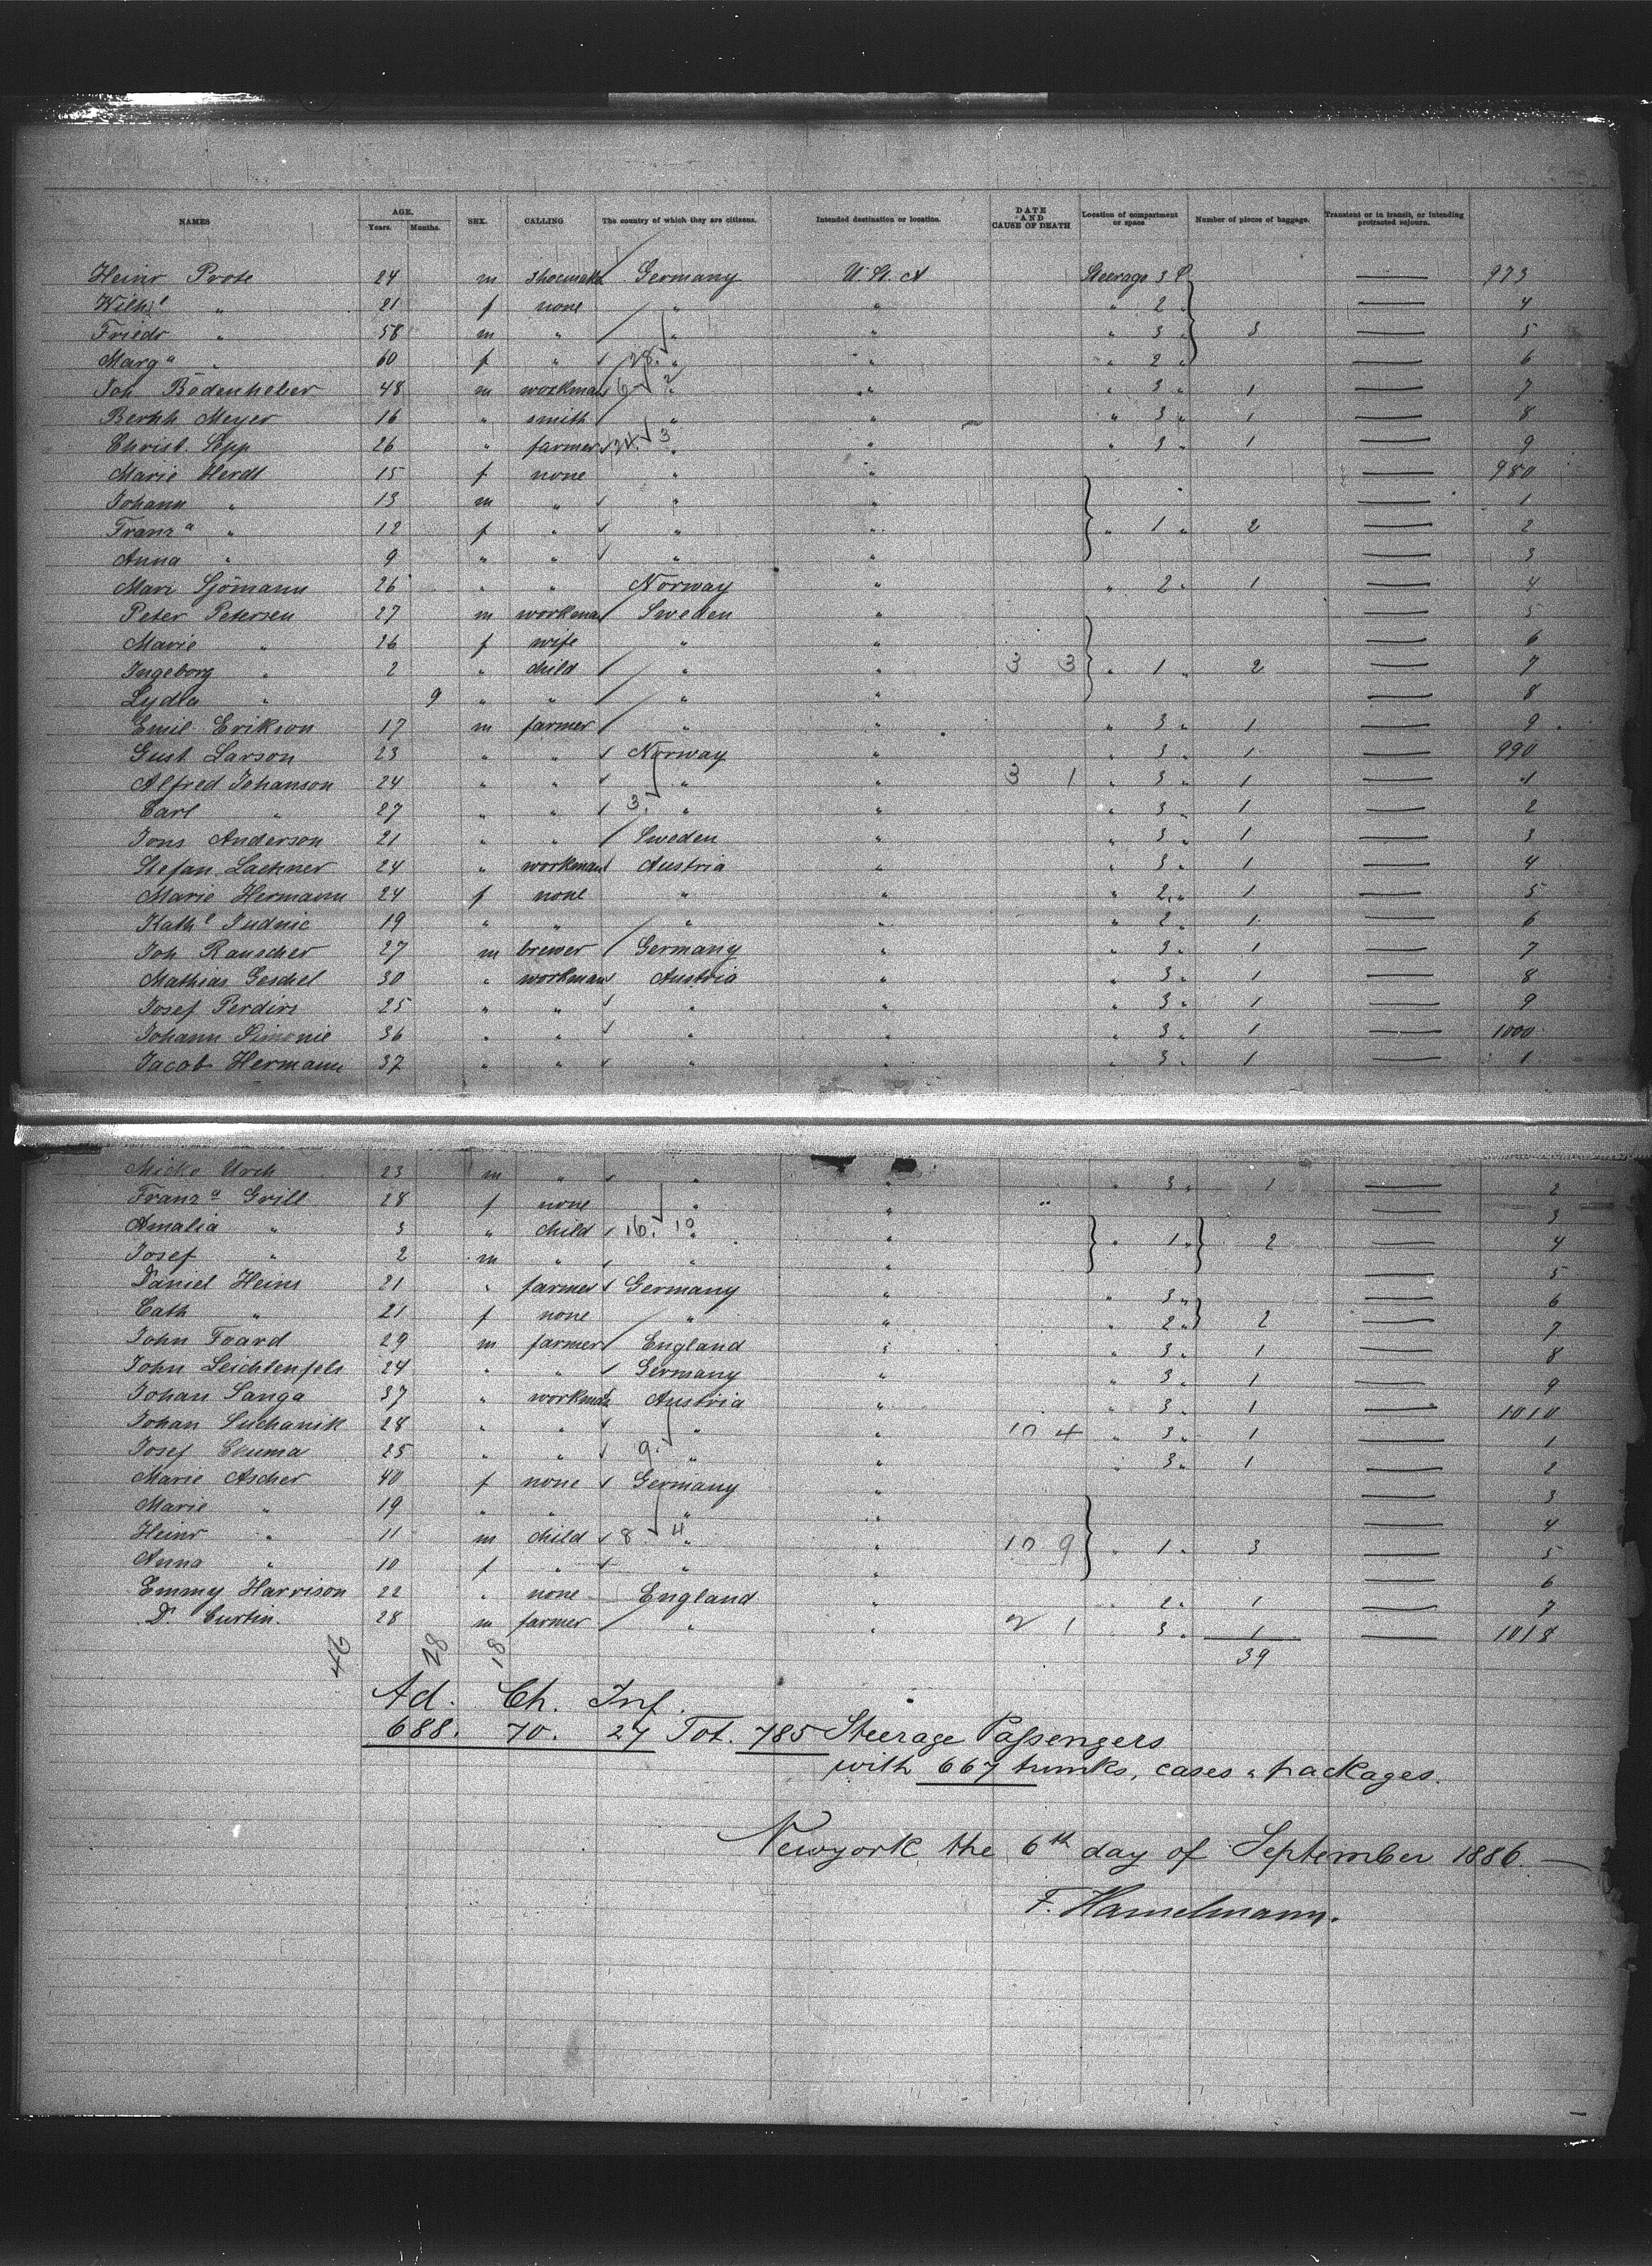 NAMES AGE. Years. Months. SEX. CALLING The country of which they are citizens. Intended destination or location. DATE AND CAUSE OF DEATH Location of compartment or space Number of pieces of baggage. Transient or in transit, or intending protracted sojourn.
Heinr Prote 24 m shoemaker Germany U. St. A Steerage 3 973
Wilhe " 21 f none " " " 2 " 4
Friedr " 58 m " " " " 3 " 3 5
Marga " 60 f " 28. " " " 2 " 6
Joh Bödenheber 48 m workman 6 2 " " " 3 " 1 7
Bernh Meyer 16 " smith " " " 3 " 1 8
Christ. Sepp 26 " farmer 24. 3 " " " 3 " 1 9
Marie Herdt 15 f none " " 980
Johann " 13 m " " " 1
Franza " 12 f " " " " 1 " 2 2
Anna " 9 " " " " 3
Mari Sjömann 26 " " Norway " " 2 " 1 4
Peter Petersen 27 m workman Sweden " 5
Marie " 26 f wife " " 6
Ingeborg " 2 " child " " 3 3 " 1 " 2 7
Lydia " 9 " " " " 8
Emil Erikson 17 m farmer " " " 3 " 1 9
Gust Larson 23 " " Norway " " 3 " 1 990
Alfred Johanson 24 " " " " 3 1 " 3 " 1 1
Carl " 27 " " 3. " " " 3 " 1 2
Jons Anderson 21 " " Sweden " " 3 " 1 3
Stefan Lackner 24 " workman Austria " " 3 " 1 4
Marie Hermann 24 f none " " " 2 " 1 5
Kathe Judnic 19 " " " " " 2 " 1 6
Joh Rauscher 27 m brewer Germany " " 3 " 1 7
Mathias Geschel 30 " workman Austria " " 3 " 1 8
Josef Perdirs 25 " " " " " 3 " 1 9
Johann Simonic 36 " " " " " 3 " 1 1000
Jacob Hermann 37 " " " " " 3 " 1 1
Micko Urch 23 m " " " " 3 " 1 2
Franza Grill 28 f none " " 3
Amalia " 3 " child 16. 10 " " " 1 " 2 4
Josef " 2 m " " " 5
Daniel Heins 21 " farmer Germany " " 3 " 6
Cath " 21 f none " " 2 " 2 7
John Foard 29 m farmer England " " 3 " 1 8
John Leichtenfels 24 " " Germany " " 3 " 1 9
Johan Langa 37 " workman Austria " " 3 " 1 1010
Johan Suchanik 28 " " " " 10 4 " 3 " 1 1
Josef 25 " " 9. " " " 3 " 1 2
Marie Ascher 40 f none Germany " 3
Marie " 19 " " " " 4
Heinr " 11 m child 8 4 " " 10 9 " 1 " 3 5
Anna " 10 f " " " 6
Emmy Harrison 22 " none England " 2 " 1 7
D. Curtin. 28 m farmer " " 2 1 " 3 " 1 1018
46 28 18 39
Ad. Ch. Inf.
688. 70. 27 Tot. 785 Steerage Passengers
with 667 trunks, cases & packages.
Newyork the 6th day of September 1886.
F. Hamelmann.